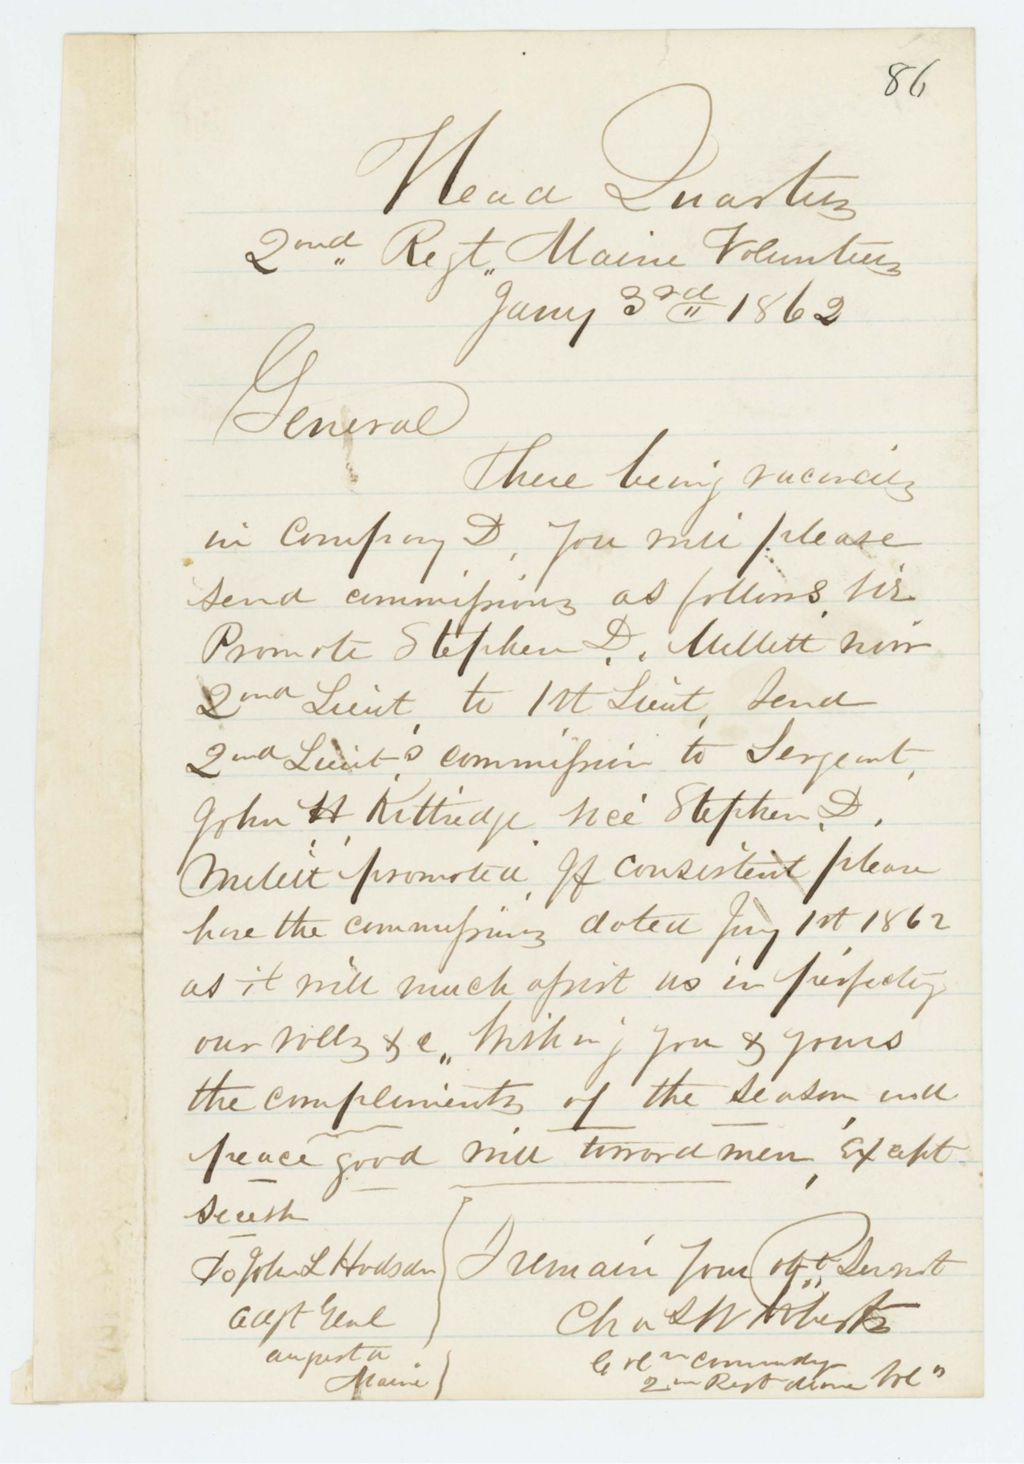 86
Head Quarters
2nd Regt Maine Volunteers
Jany 3rd 1862
General
There being vacancies
in Company D, You will please
send commissions as follows, viz
Promote Stephen D. Millett now
2nd Lieut, to 1st Lieut, Send
2nd Lieut's commission to Sergeant,
John H. Kittredge vice Stephen D.
Millett promoted, If consistent please
have the commissions dated Jany 1st 1862
as it will much assist us in perfecting
our rolls &c, Wishing you & yours
the compliments of the season, and
peace good will toward men, Except
secesh
To John L Hodsdon
Adjt Genl
Augusta
Maine
I remain Your Obt Servnt
Chas W Roberts
Coln Commndg
2nd Regt Maine Vols